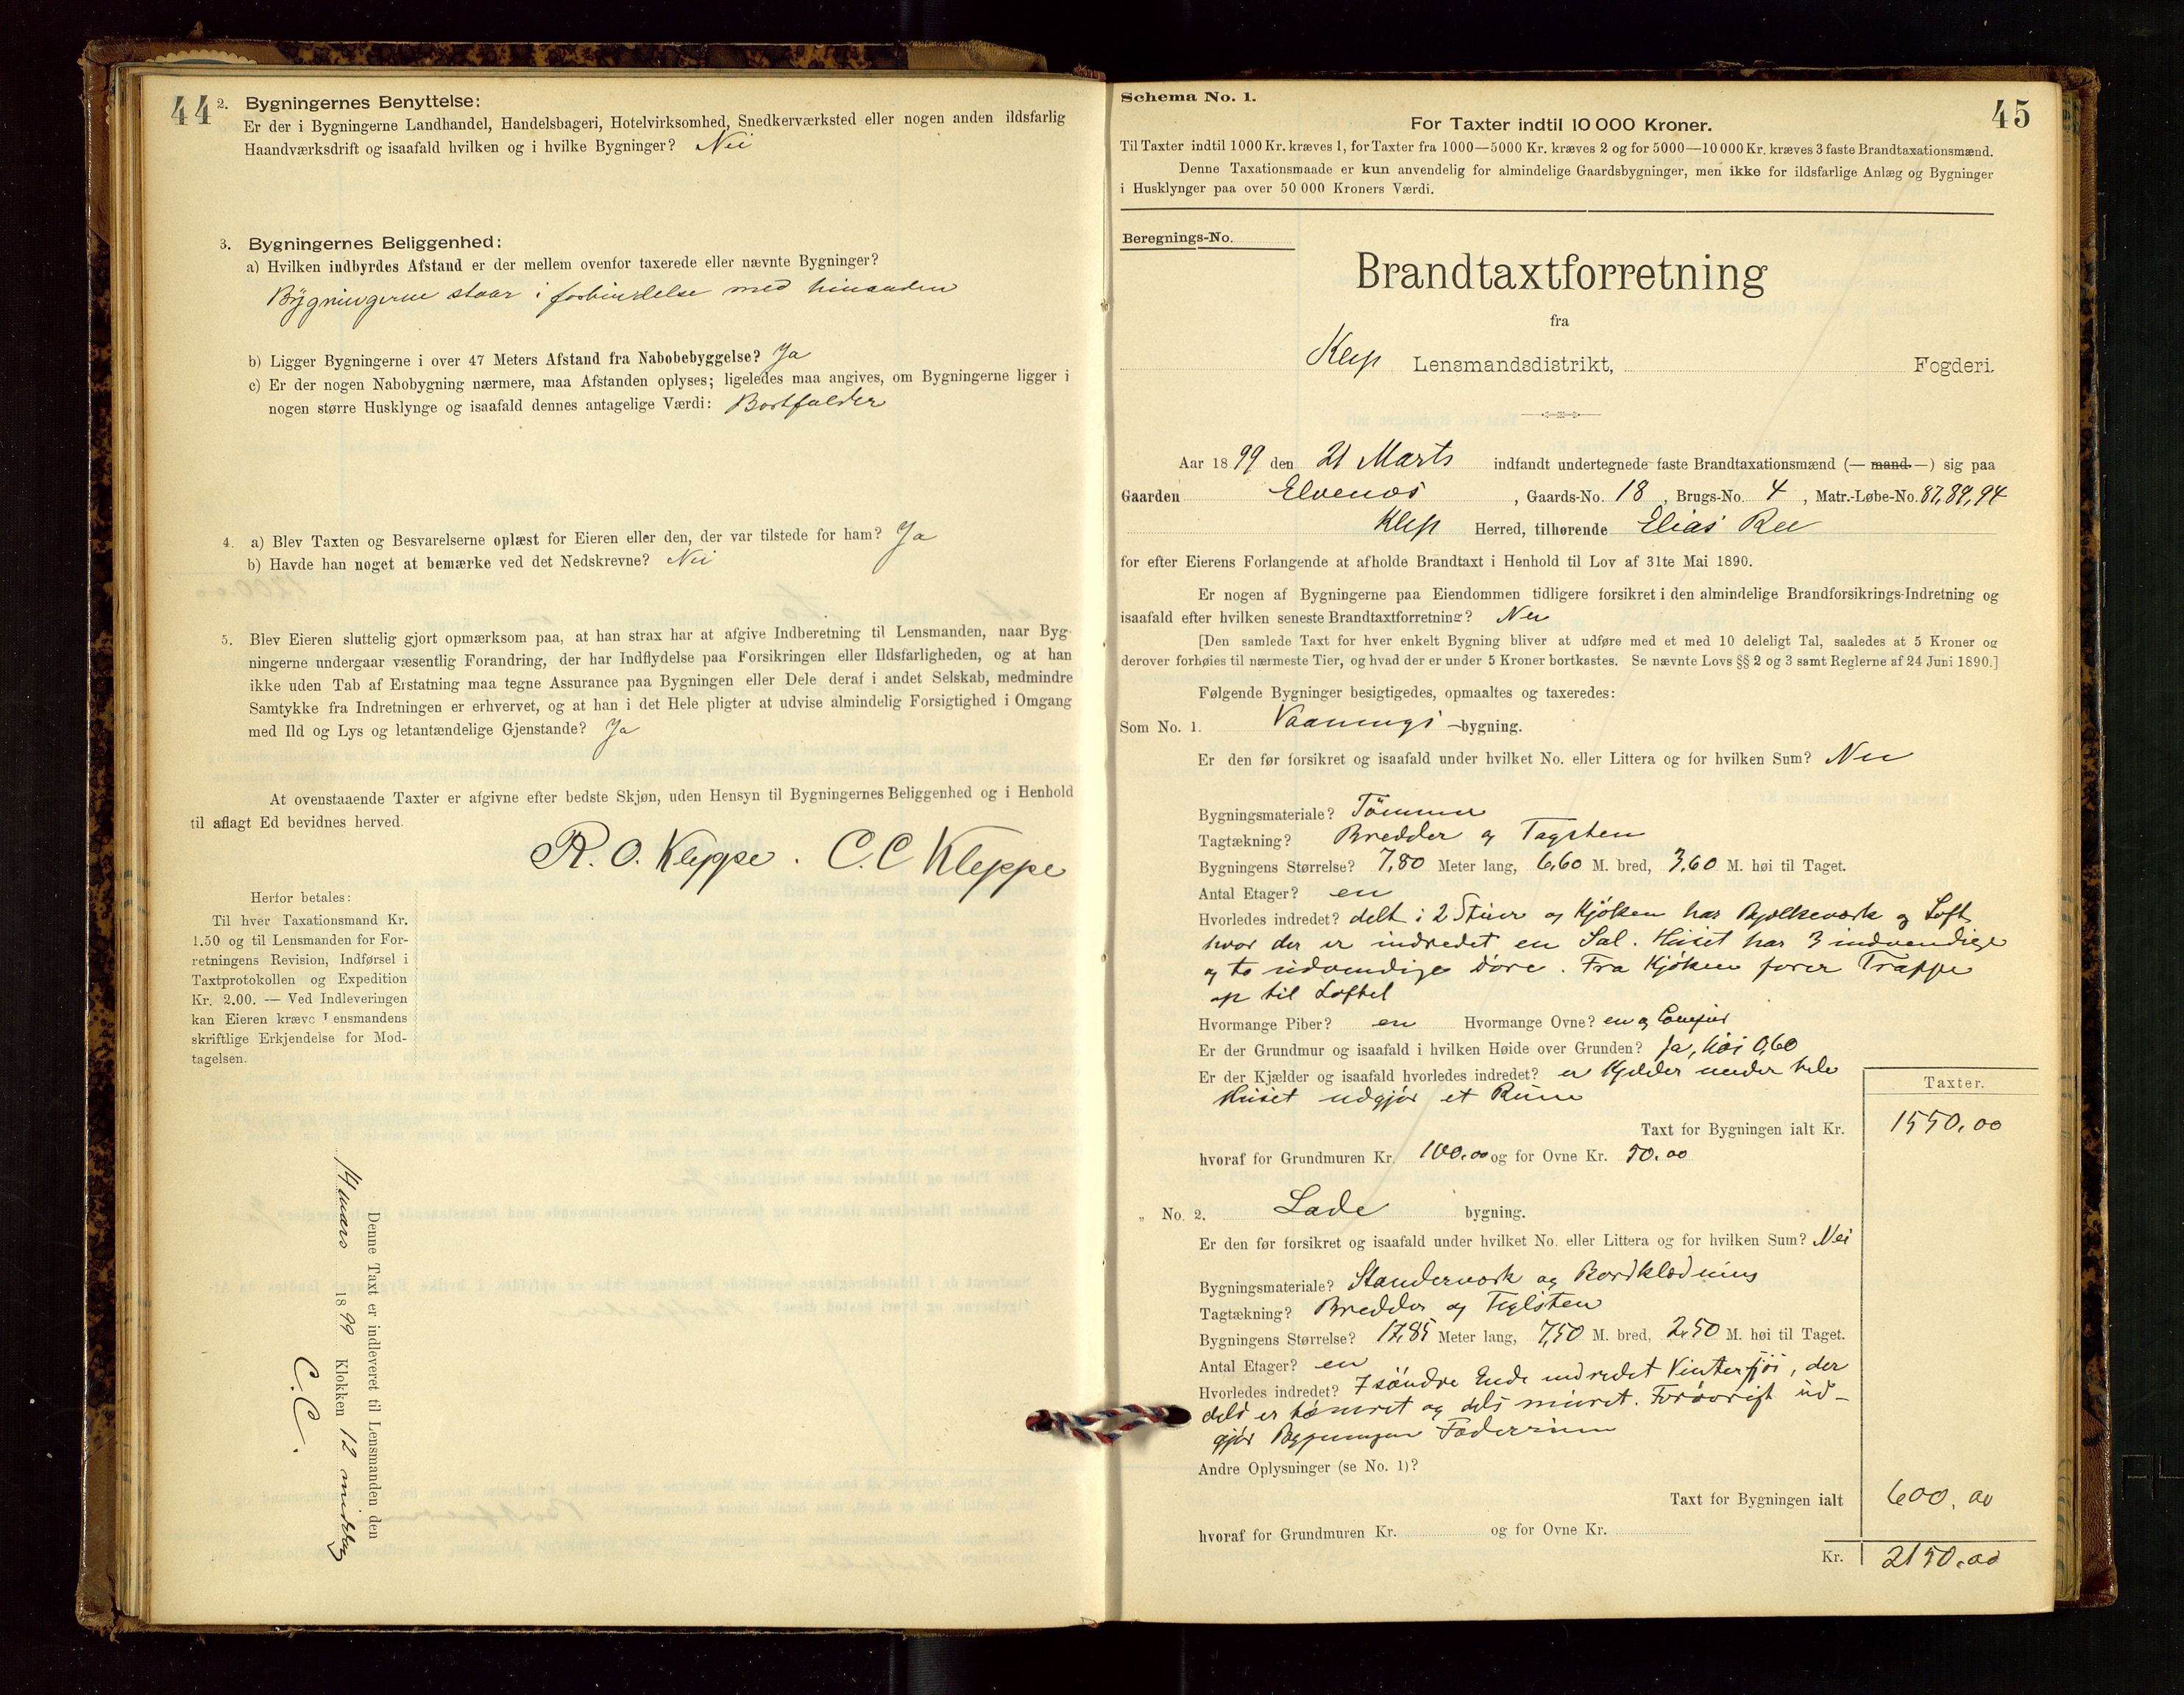 44
2. Bygningernes Benyttelse:
Er der i Bygningerne Landhandel, Handelsbageri, Hotelvirksomhed, Snedkerværksted eller nogen anden ildsfarlig
Haandværksdrift og isaafald hvilken og i hvilke Bygninger? Nei
3. Bygningernes Beliggenhed:
a) Hvilken indbyrdes Afstand er der mellem ovenfor taxerede eller nævnte Bygninger?
Bygningerne staar i forbindelse med hinanden
b) Ligger Bygningerne i over 47 Meters Afstand fra Nabobebyggelse? Ja
c) Er der nogen Nabobygning nærmere, maa Afstanden oplyses; ligeledes maa angives, om Bygningerne ligger i
nogen større Husklynge og isaafald dennes antagelige Værdi: Bortfalder
4. a) Blev Taxten og Besvarelserne oplæst for Eieren eller den, der var tilstede for ham? Ja
b) Havde han noget at bemærke ved det Nedskrevne? Nei
5. Blev Eieren sluttelig gjort opmærksom paa, at han strax har at afgive Indberetning til Lensmanden, naar Byg-
ningerne undergaar væsentlig Forandring, der har Indflydelse paa Forsikringen eller Ildsfarligheden, og at han
ikke uden Tab af Erstatning maa tegne Assurance paa Bygningen eller Dele deraf i andet Selskab, medmindre
Samtykke fra Indretningen er erhvervet, og at han i det Hele pligter at udvise almindelig Forsigtighed i Omgang
med Ild og Lys og letantændelige Gjenstande? Ja
At ovenstaaende Taxter er afgivne efter bedste Skjøn, uden Hensyn til Bygningernes Beliggenhed og i Henhold
til aflagt Ed bevidnes herved.
R. O. Kleppe. C. C Kleppe
Herfor betales:
Til hver Taxationsmand Kr.
1.50 og til Lensmanden for For-
retningens Revision, Indførsel i
Taxtprotokollen og Expedition
Kr. 2.00. — Ved Indleveringen
kan Eieren kræve Lensmandens
skriftlige Erkjendelse for Mod-
tagelsen.
Denne Taxt er indleveret til Lensmanden den
14 mars 1899 Klokken 12 middag
C. C.
45
Schema No. 1.
For Taxter indtil 10 000 Kroner.
Til Taxter indtil 1000 Kr. kræves 1, for Taxter fra 1000—5000 Kr. kræves 2 og for 5000—10 000 Kr. kræves 3 faste Brandtaxationsmænd.
Denne Taxationsmaade er kun anvendelig for almindelige Gaardsbygninger, men ikke for ildsfarlige Anlæg og Bygninger
i Husklynger paa over 50 000 Kroners Værdi.
Beregnings-No.
Brandtaxtforretning
fra
Klep Lensmandsdistrikt, Fogderi.
Aar 1899 den 21 Marts indfandt undertegnede faste Brandtaxationsmænd (— mand. —) sig paa
Gaarden Elvenæs, Gaards-No. 18, Brugs-No. 4, Matr.-Løbe-No. 87,89,94
Klep Herred, tilhørende Elias Ree
for efter Eierens Forlangende at afholde Brandtaxt i Henhold til Lov af 31te Mai 1890.
Er nogen af Bygningerne paa Eiendommen tidligere forsikret i den almindelige Brandforsikrings-Indretning og
isaafald efter hvilken seneste Brandtaxtforretning? Nei
[Den samlede Taxt for hver enkelt Bygning bliver at udføre med et med 10 deleligt Tal, saaledes at 5 Kroner og
derover forhøies til nærmeste Tier, og hvad der er under 5 Kroner bortkastes. Se nævnte Lovs §§ 2 og 3 samt Reglerne af 24 Juni 1890.]
Følgende Bygninger besigtigedes, opmaaltes og taxeredes:
Som No. 1. Vaanings-bygning.
Er den før forsikret og isaafald under hvilket No. eller Littera og for hvilken Sum? Nei
Bygningsmateriale? Tømmer
Tagtækning? Bredder og Tagsten
Bygningens Størrelse? 7,80 Meter lang, 6,60 M. bred, 3,60 M. høi til Taget.
Antal Etager? en
Hvorledes indredet? delt i 2 Stuer og Kjøken har Bjælkeværk og Loft
hvor der er indredet en Sal. Huset har 3 indvendige
og to udvendige døre. Fra Kjøken fører Trappe
op til Loftet
Hvormange Piber? en Hvormange Ovne? en og Comfur
Er der Grundmur og isaafald i hvilken Høide over Grunden? Ja, høi 0,60
Er der Kjælder og isaafald hvorledes indredet? er Kjelder under hele
Huset udgjør et Rum
Taxter.
Taxt for Bygningen ialt Kr. 1550,00
hvoraf for Grundmuren Kr. 100,00 og for Ovne Kr. 50,00
„ No. 2. Lade bygning.
Er den før forsikret og isaafald under hvilket No. eller Littera og for hvilken Sum? Nei
Bygningsmateriale? Standerværk og Bordklædning
Tagtækning? Bredder og Teglsten
Bygningens Størrelse? 17,85 Meter lang, 7,50 M. bred, 2,50 M. høi til Taget.
Antal Etager? en
Hvorledes indredet? I søndre Ende indredet Vinterfjøs, der
dels er tømret og dels muret. Forøvrigt ud-
gjør Bygningen Foderrum
Andre Oplysninger (se No. 1)?
Taxt for Bygningen ialt 600,00
hvoraf for Grundmuren Kr. og for Ovne Kr.
Kr. 2150,00